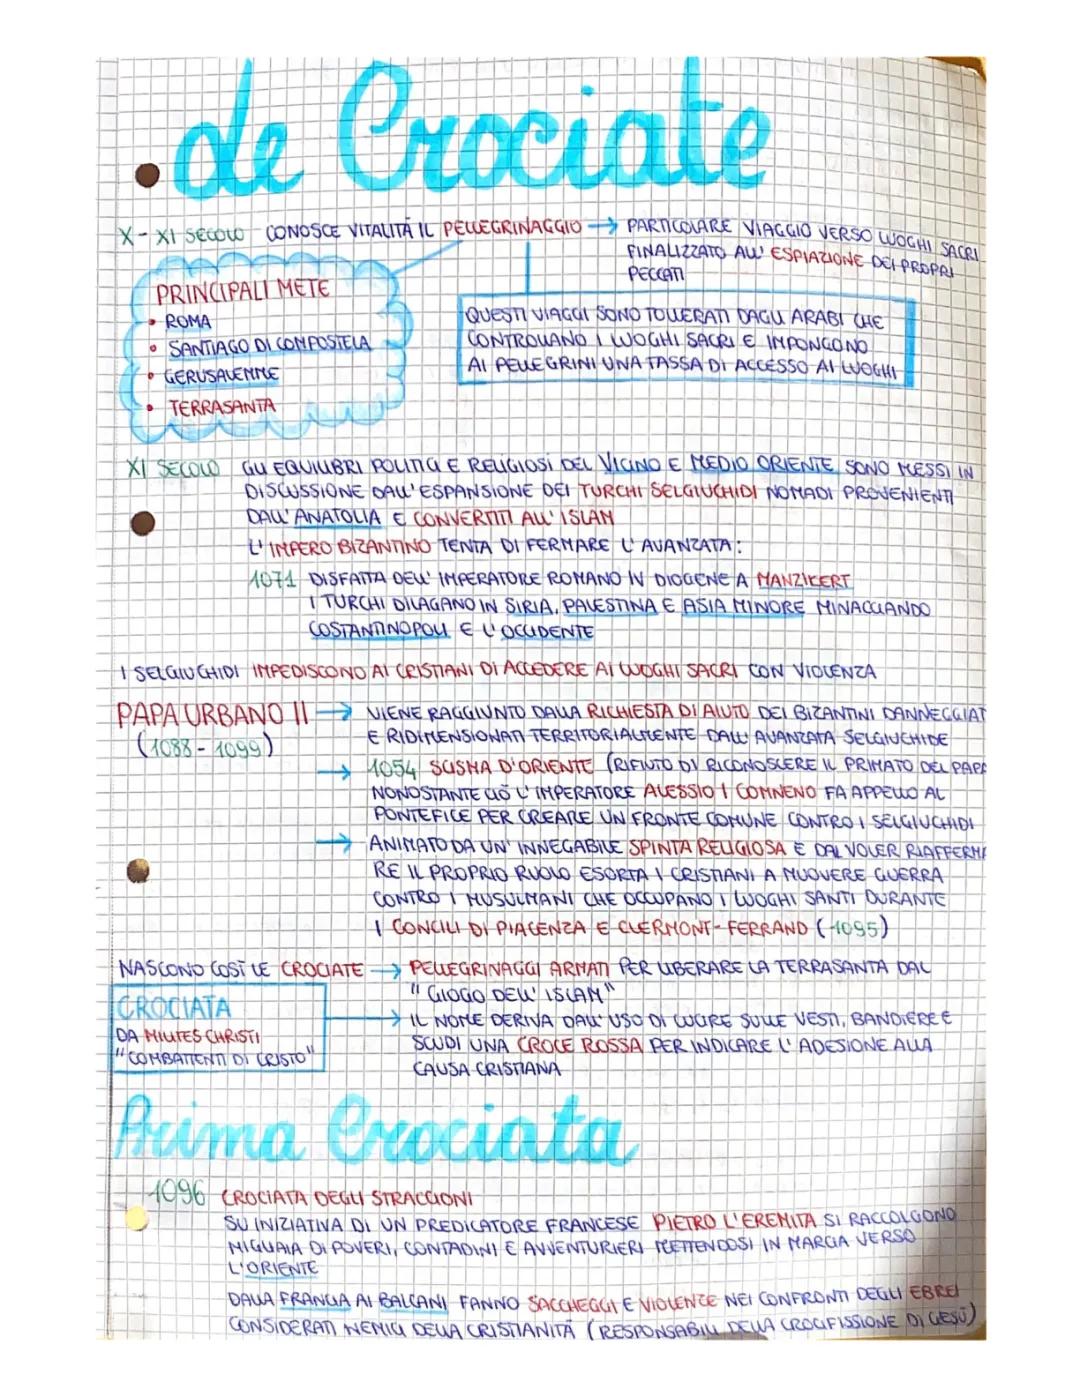 Le Crociate
X - XI SECOLO CONOSCE VITALITÀ IL PELLEGRINAGGIO → PARTICOLARE VIAGGIO VERSO LUOGHI SACRI
FINALIZZATO ALL' ESPIAZIONE DEI PROPRI
PECCATI
PRINCIPALI METE
• ROMA
• SANTIAGO DI COMPOSTELA
• GERUSALEMME
• TERRASANTA
QUESTI VIAGGI SONO TOLLERATI DAGLI ARABI CHE
CONTROLLANO I LUOGHI SACRI E IMPONGONO
AI PELLEGRINI UNA TASSA DI ACCESSO AI LUOGHI
XI SECOLO GLI EQUILIBRI POLITICI E RELIGIOSI DEL VICINO E MEDIO ORIENTE SONO MESSI IN
DISCUSSIONE DALL'ESPANSIONE DEI TURCHI SELGIUCHIDI NOMADI PROVENIENTI
DALL'ANATOLIA E CONVERTITI ALL'ISLAM
L'IMPERO BIZANTINO TENTA DI FERMARE L'AVANZATA:
1071 DISFATTA DELL'IMPERATORE ROMANO IV DIOGENE A MANZIKERT
I TURCHI DILAGANO IN SIRIA, PALESTINA E ASIA MINORE MINACCIANDO
COSTANTINOPOLI E L'OCCIDENTE
I SELGIUCHIDI IMPEDISCONO AI CRISTIANI DI ACCEDERE AI LUOGHI SACRI CON VIOLENZA
PAPA URBANO II → VIENE RAGGIUNTO DALLA RICHIESTA DI AIUTO DEI BIZANTINI DANNEGGIAT
(1088 - 1099) E RIDIMENSIONATI TERRITORIALMENTE DALL'AVANZATA SELGIUCHIDE
→ 1054 SCISMA D'ORIENTE (RIFIUTO DI RICONOSCERE IL PRIMATO DEL PAPA
NONOSTANTE CIÒ L'IMPERATORE ALESSIO I COMNENO FA APPELLO AL
PONTEFICE PER CREARE UN FRONTE COMUNE CONTRO I SELGIUCHIDI
→ ANIMATO DA UN' INNEGABILE SPINTA RELIGIOSA E DAL VOLER RIAFFERMA
RE IL PROPRIO RUOLO ESORTA I CRISTIANI A MUOVERE GUERRA
CONTRO I MUSULMANI CHE OCCUPANO I LUOGHI SANTI DURANTE
I CONCILI DI PIACENZA E CLERMONT-FERRAND (1095)
NASCONO COSÌ LE CROCIATE → PELLEGRINAGGI ARMATI PER LIBERARE LA TERRASANTA DAL
"GIOGO DELL'ISLAM"
CROCIATA
DA MILITES CHRISTI
"COMBATTENTI DI CRISTO"
→ IL NOME DERIVA DALL'USO DI CUCIRE SULLE VESTI, BANDIERE E
SCUDI UNA CROCE ROSSA PER INDICARE L'ADESIONE ALLA
CAUSA CRISTIANA
Prima Crociata
1096 CROCIATA DEGLI STRACCIONI
SU INIZIATIVA DI UN PREDICATORE FRANCESE PIETRO L'EREMITA SI RACCOLGONO
MIGLIAIA DI POVERI, CONTADINI E AVVENTURIERI METTENDOSI IN MARCIA VERSO
L'ORIENTE
DALLA FRANCIA AI BALCANI FANNO SACCHEGGI E VIOLENZE NEI CONFRONTI DEGLI EBREI
CONSIDERATI NEMICI DELLA CRISTIANITÀ (RESPONSABILI DELLA CROCIFISSIONE DI GESÙ)